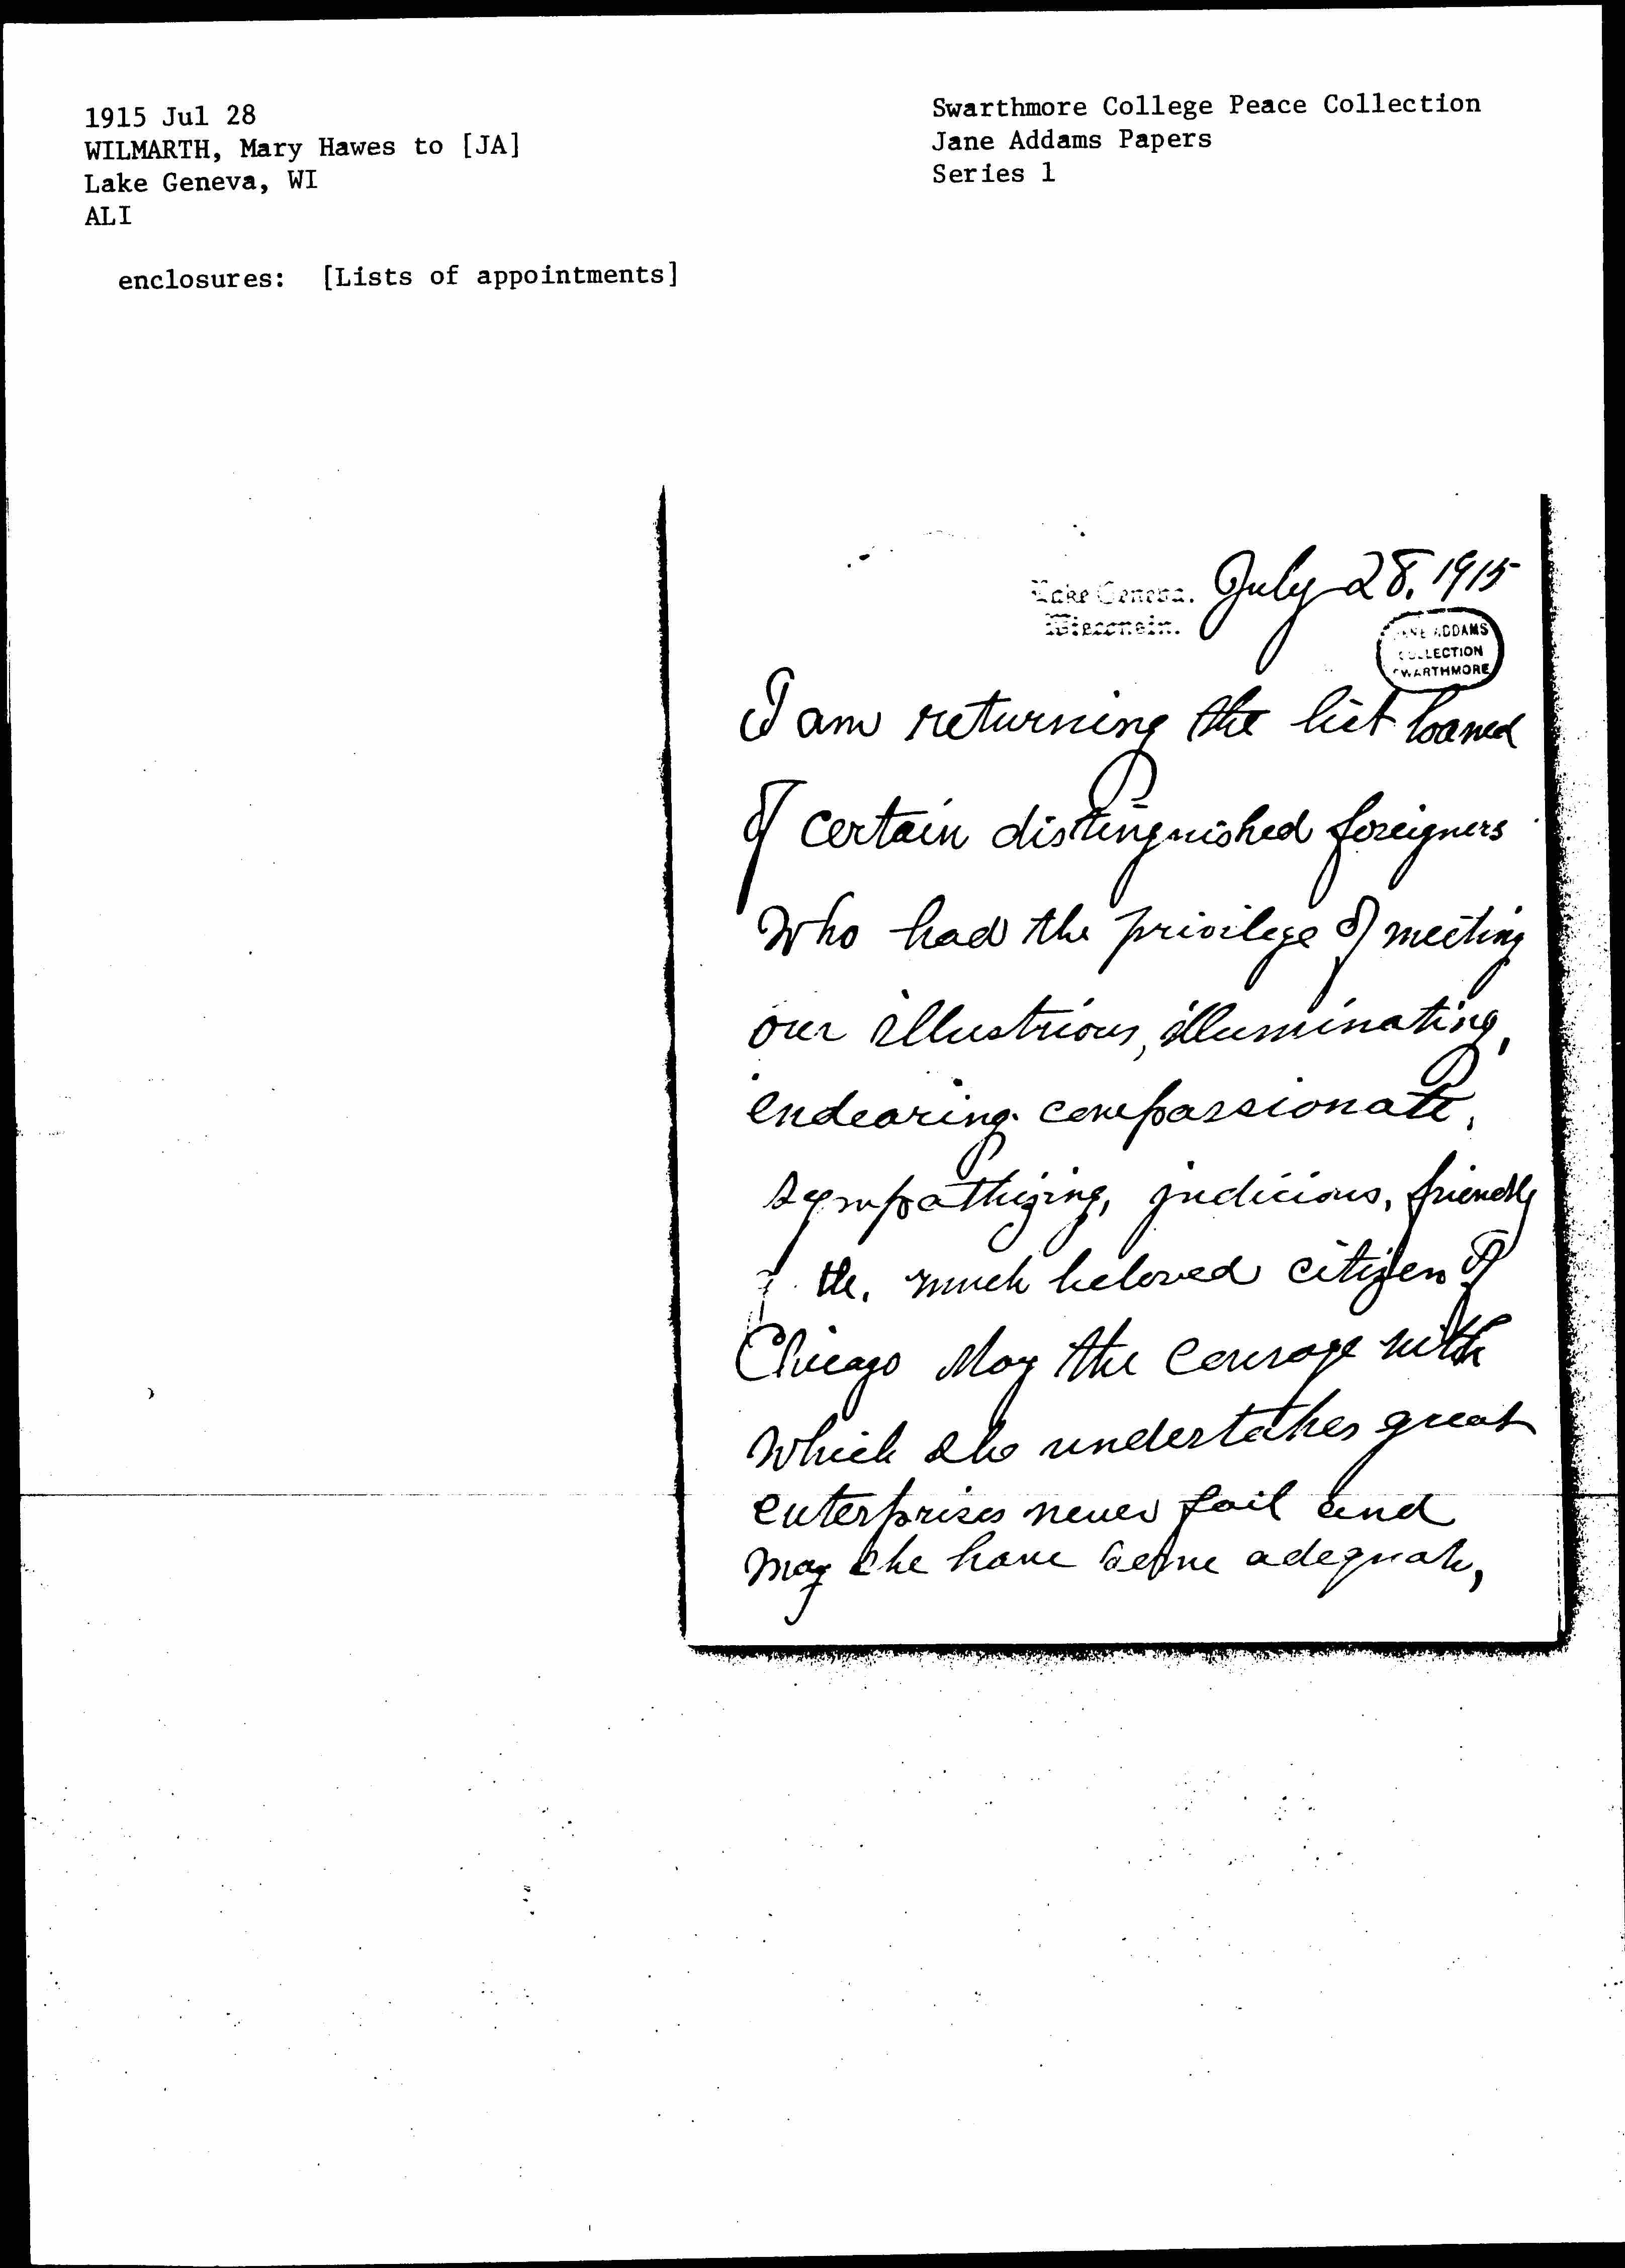 1915 Jul 28
WILMARTH, Mary Hawes to [JA]
Lake Geneva, WI
ALI
enclosures: [Lists of appointments]
Swarthmore College Peace Collection
Jane Addams Papers
Series 1
Lake Geneva. July 28. 1915
Wisconsin.
JANE ADDAMS
COLLECTION
SWARTHMORE
I am returning the list loaned
of certain distinguished foreigners
who had the privilege of meeting
our illustrious, illuminating,
endearing compassionate,
sympathizing, judicious, friendly
the, much beloved citizen of
Chicago May the courage with
which she undertakes great
enterprises never fail and
may she have some adequate,